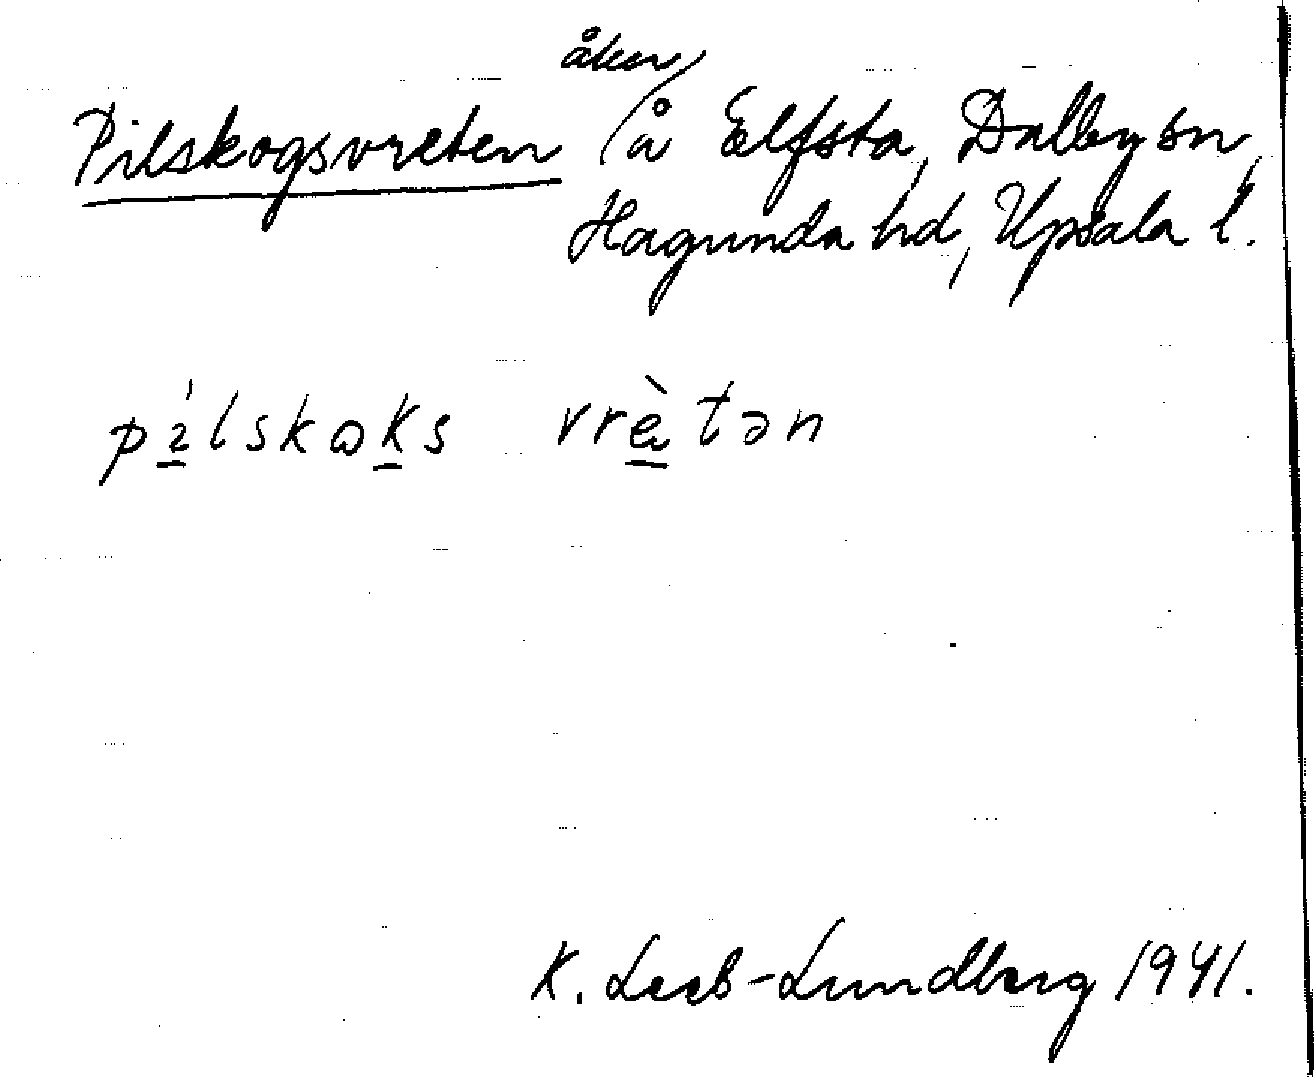 åker
Pilskogsvreten / å Elfsta, Dalby sn,
Hagunda hd, Upsala l.
pílskɷks vrètən
K. Leeb-Lundberg 1941.